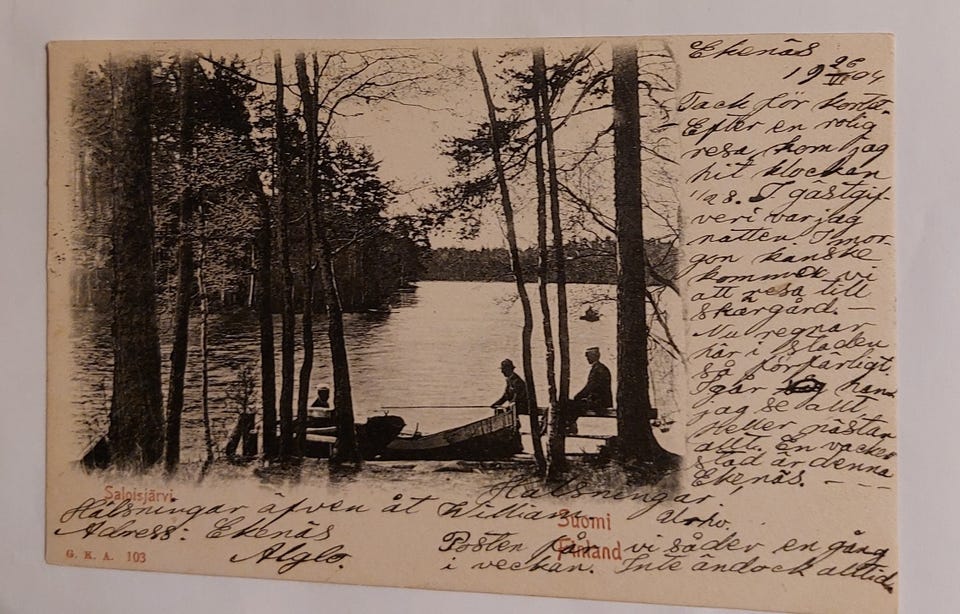 Ekenäs
19 26/VI 04
Tack för kortet.
Efter en rolig
resa kom jag
hit klockan
1/2 8. I gästgif-
veri var jag
natten. I mor-
gon kanske
kommer vi
att resa till
skärgård. —
Nu regnar
här i staden
så förfärligt.
Igår hann
jag se allt
Heller nästan
allt. En vacker
stad är denna
Ekenäs. — —
Hälsningar,
Saloisjärvi.
Hälsningar äfven åt William
Suomi
Finland
Adress: Ekenäs
G. K. A. 103
Posten får vi söder en gång
i veckan. Inte ändock alltid.